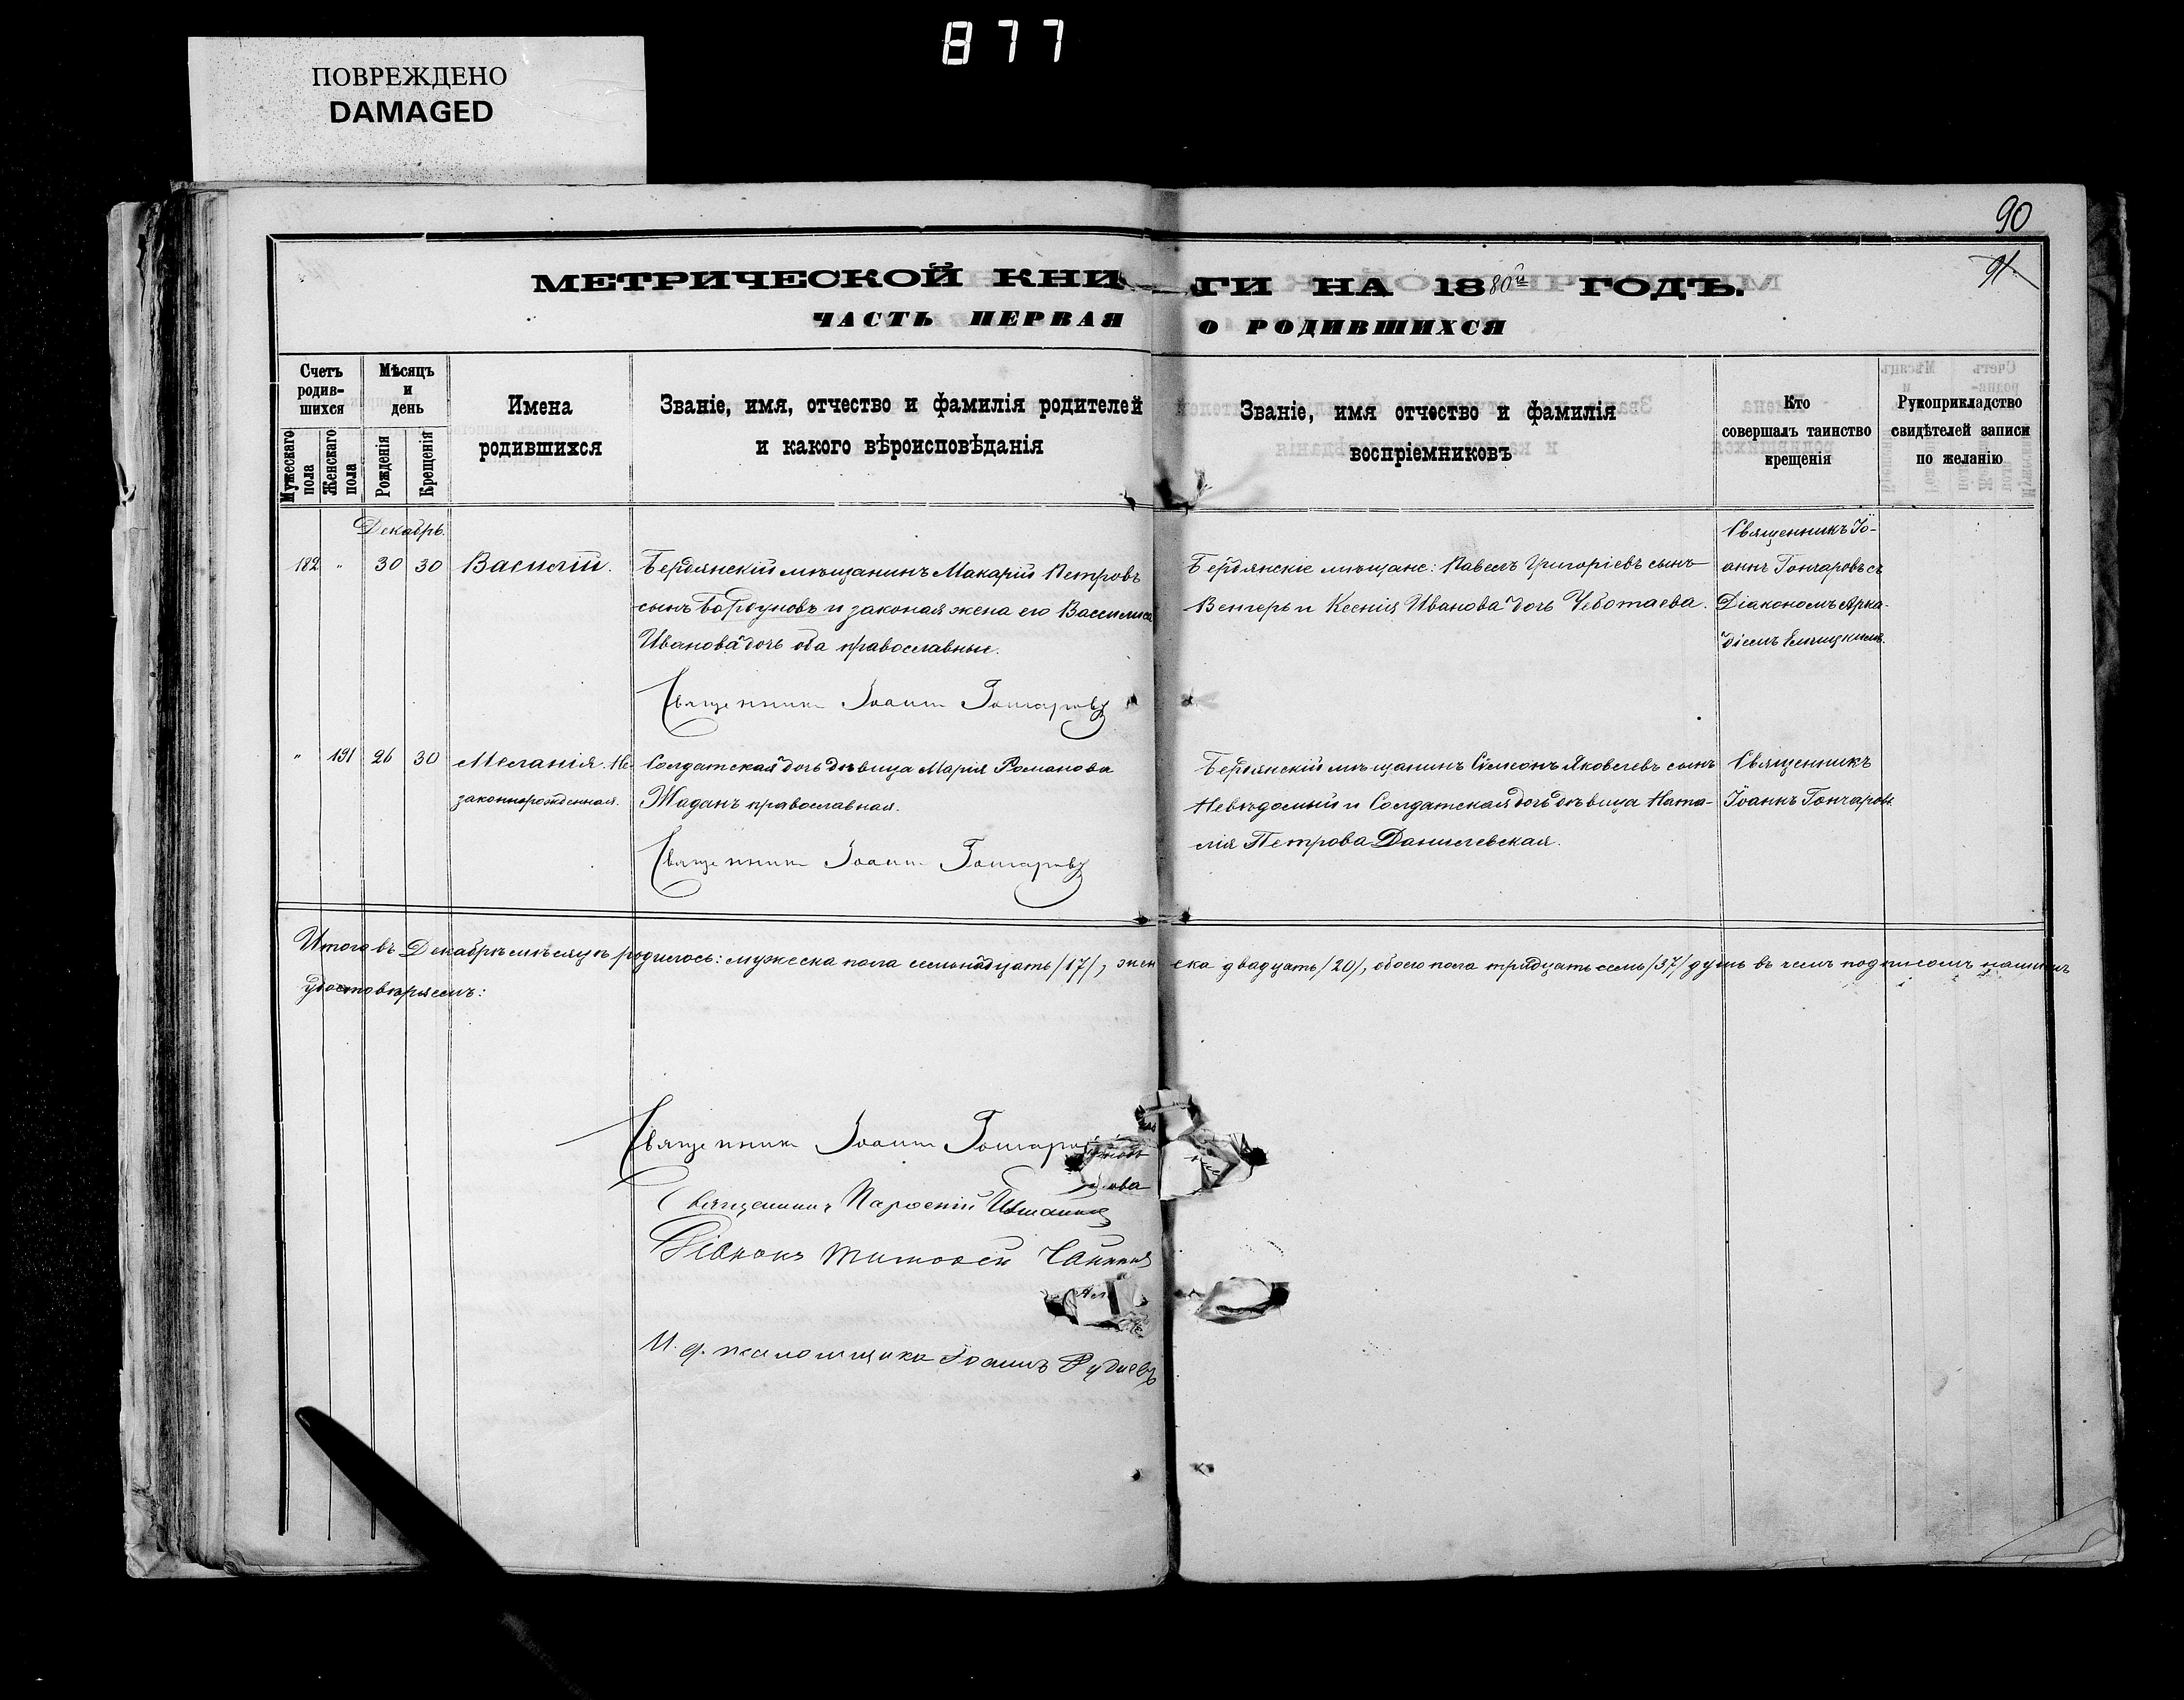 877
ПОВРЕЖДЕНО
DAMAGED
90
91
МЕТРИЧЕСКОЙ КНИГИ НА 1880й ГОДЪ.
ЧАСТЬ ПЕРВАЯ О РОДИВШИХСЯ
Счетъ родившихся
Мужескаго пола
Женскаго пола
Мѣсяцъ и день
Рожденія
Крещенія
Имена родившихся
Званіе, имя, отчество и фамилія родителей
и какого вѣроисповѣданія
Званіе, имя отчество и фамилія
воспріемниковъ
Кто
совершалъ таинство
крещенія
Рукоприкладство
свидѣтелей записи
по желанію
Декабрь.
182 " 30 30 Василій.
Бердянскій мѣщанинъ Макарій Петровъ
сынъ и законая жена его Вассилиса
Иванова дочь оба православные.
Бердянскіе мѣщане: Павелъ Григоріевъ сынъ
Венгеръ и Ксенія Иванова дочь Чеботаева.
Священникъ Іо-
аннъ Гончаровъ съ
Діакономъ Арка-
діемъ
Священникъ Іоаннъ Гончаровъ
" 191 26 30 Меланія. Не-
законнорожденная.
Солдатская дочь дѣвица Марія Романова
Жаданъ православная.
Бердянскій мѣщанинъ Сѵмеонъ Яковлевъ сынъ
Невѣдомый и Солдатская дочь дѣвица Ната-
лія Петрова Данилевская.
Священникъ
Іоаннъ Гончаровъ.
Священникъ Іоаннъ Гончаровъ
Итого въ Декабрѣ мѣсяцѣ родилось: мужеска пола семьнадцать /17/, женска двадцать /20/, обоего пола тридцать семь /37/ душъ въ чемъ подписомъ нашимъ
удостовѣряемъ:
Священникъ Іоаннъ Гончаровъ
Священникъ
Діаконъ Тимофей
И. д. псаломщика Іоаннъ